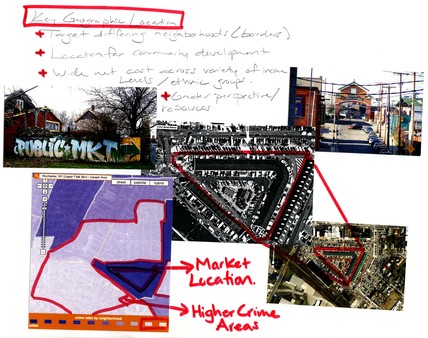 Key Geographic Location
+ Target differing neighborhoods (borders)
+ Location for community development
+ Wide net cast across variety of income
levels / ethnic groups.
+ Greater perspective/
resources
PUBLIC MKT
street satellite hybrid
Market
Location.
Higher Crime
Areas
crime rates by neighborhood